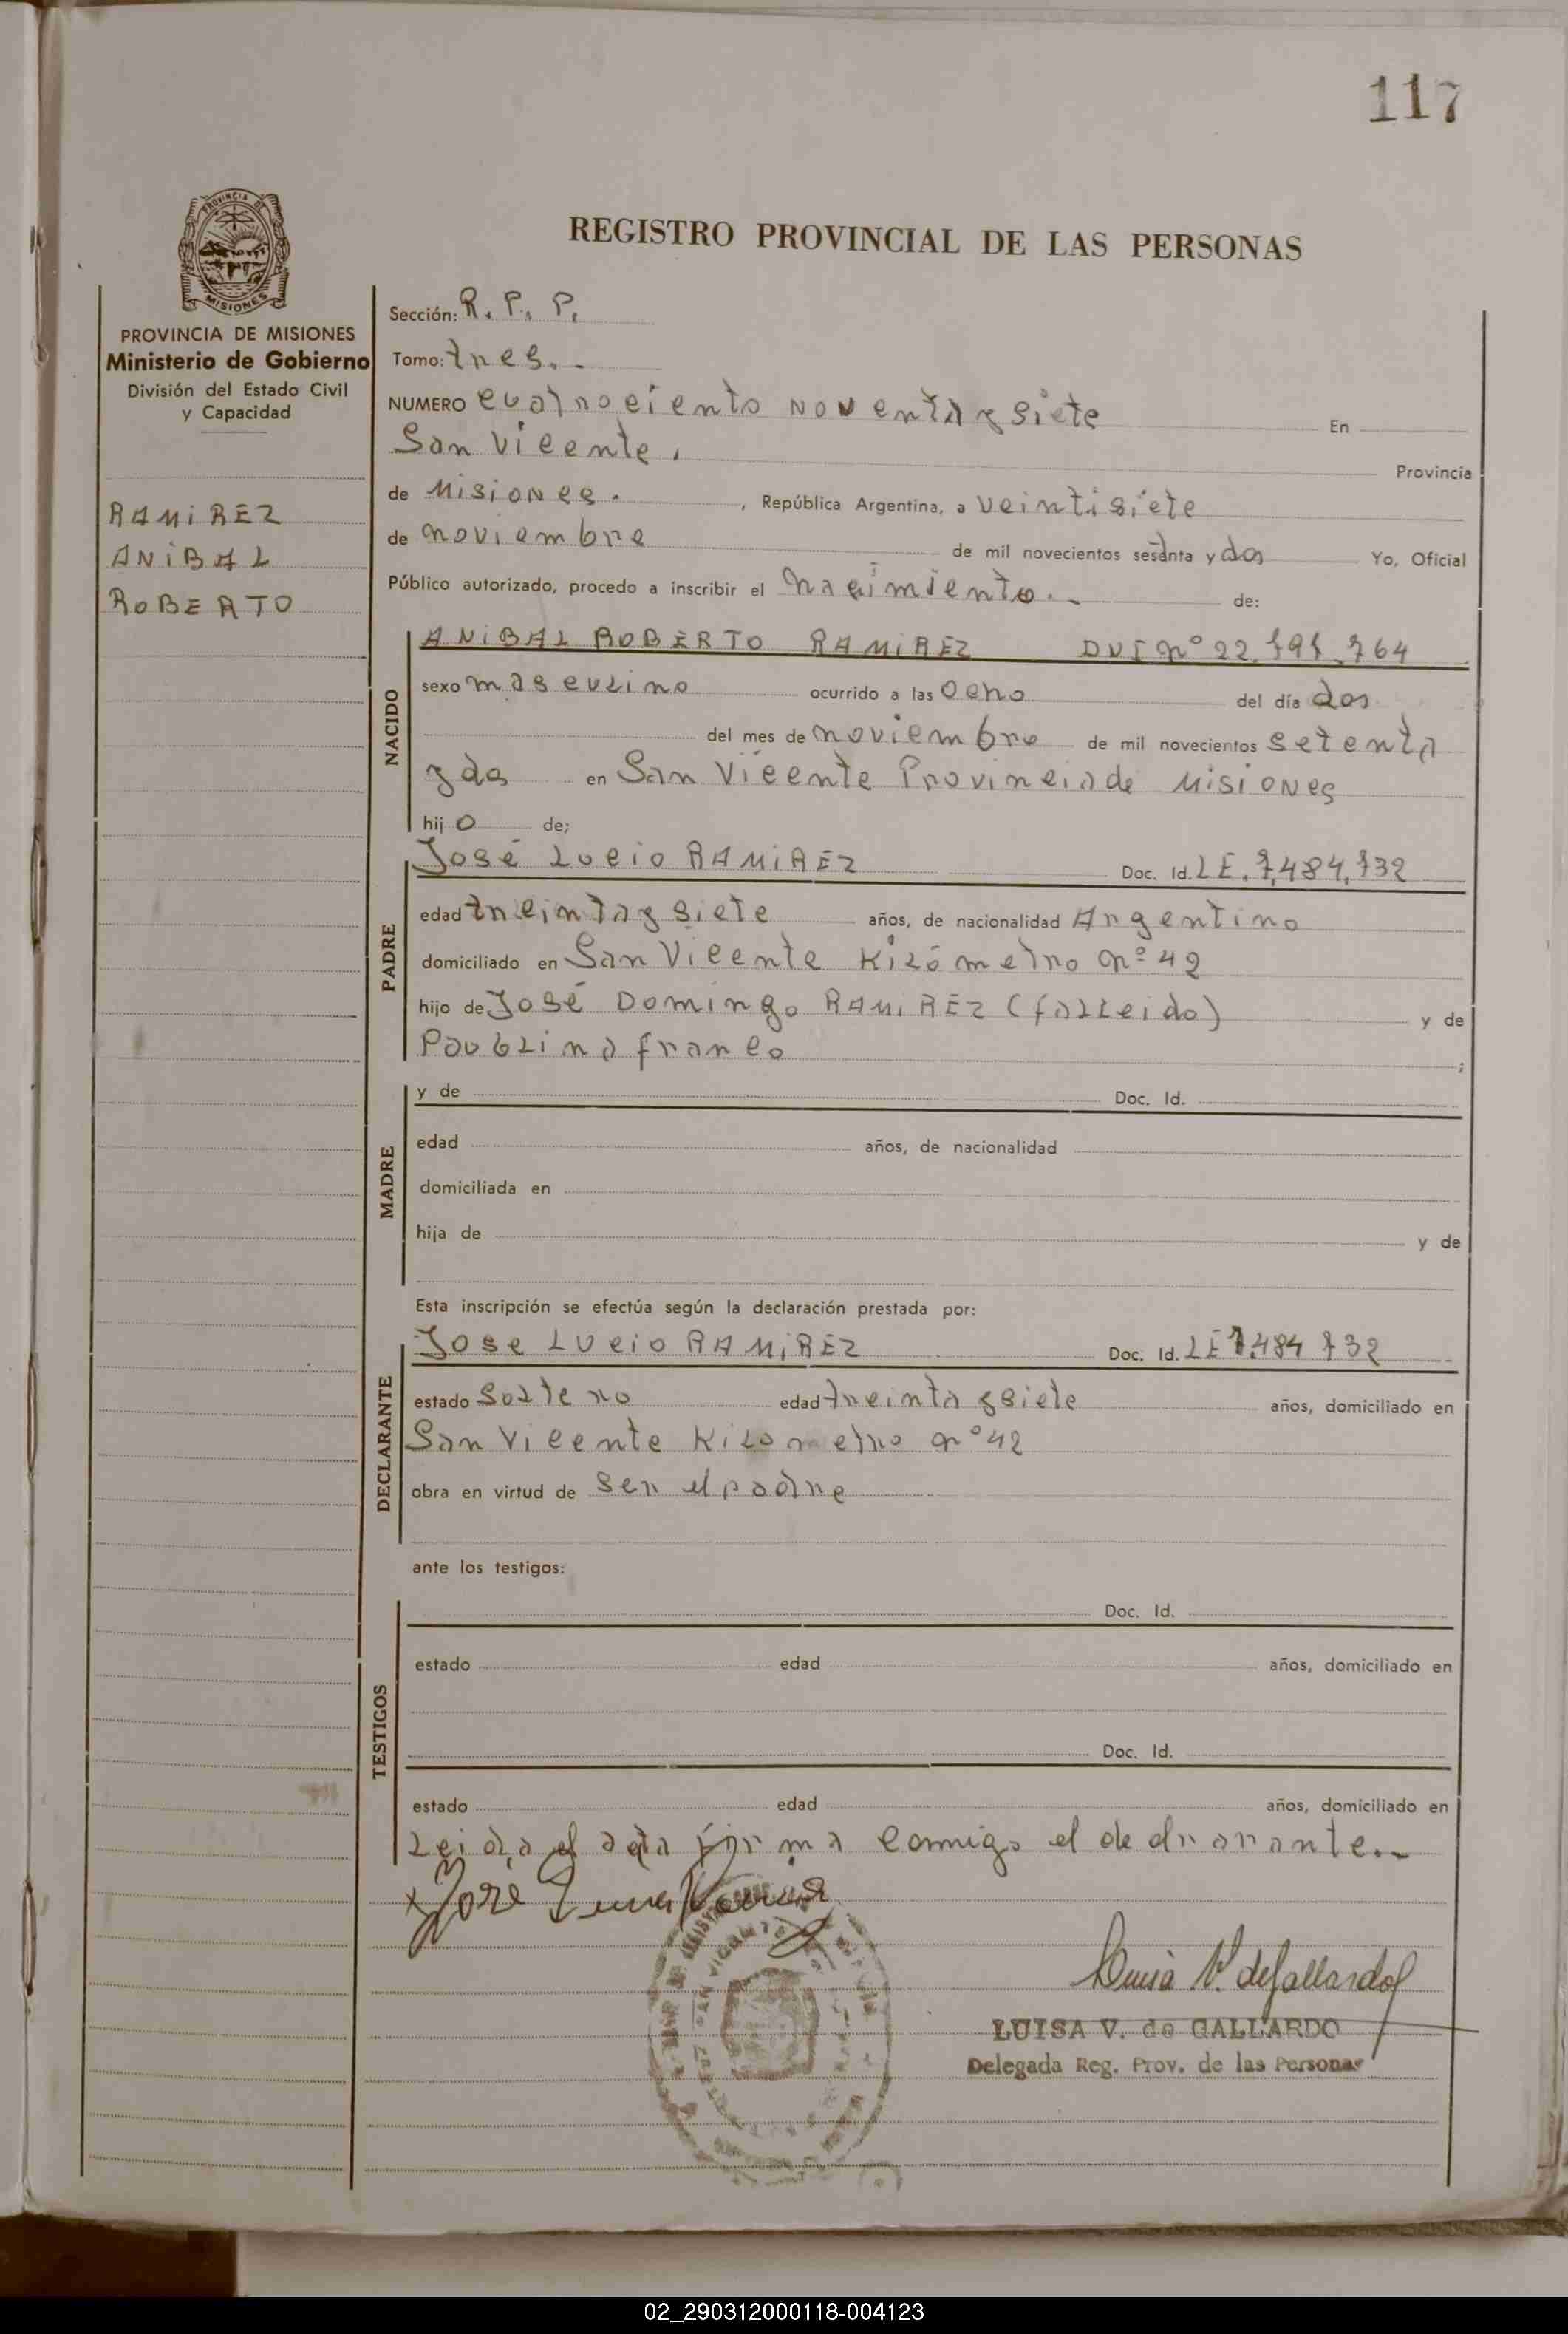 117
PROVINCIA DE MISIONES
REGISTRO PROVINCIAL DE LAS PERSONAS
PROVINCIA DE MISIONES
Ministerio de Gobierno
División del Estado Civil
y Capacidad
RAMIREZ
ANIBAL
ROBERTO
Sección: R. P. P.
Tomo: tres.-
NUMERO cuatrociento noventa y siete En
San Vicente. Provincia
de Misiones. , República Argentina, a veintisiete
de noviembre de mil novecientos setenta y dos Yo, Oficial
Público autorizado, procedo a inscribir el nacimiento.- de:
NACIDO
ANIBAL ROBERTO RAMIREZ DNI nº 22.791.764
sexo masculino ocurrido a las ocho del día dos
del mes de noviembre de mil novecientos setenta
y dos en San Vicente Provincia de Misiones
hijo de;
PADRE
José Lucio RAMIREZ Doc. Id. LE. 7,484,732
edad treinta y siete años, de nacionalidad Argentino
domiciliado en San Vicente Kilómetro nº 42
hijo de José Domingo RAMIREZ (falleido) y de
Paublina franco ;
MADRE
y de Doc. Id.
edad años, de nacionalidad
domiciliada en
hija de y de
Esta inscripción se efectúa según la declaración prestada por:
DECLARANTE
Jose Lucio RAMIREZ Doc. Id. LE 7.484 732
estado soltero edad treinta y siete años, domiciliado en
San Vicente Kilometro nº 42
obra en virtud de ser el padre
ante los testigos:
TESTIGOS
Doc. Id.
estado edad años, domiciliado en
Doc. Id.
estado edad años, domiciliado en
Leida el acta firma conmigo el
x Jose
Luisa V. de Gallardo
LUISA V. de GALLARDO
Delegada Reg. Prov. de las Personas
02_290312000118-004123